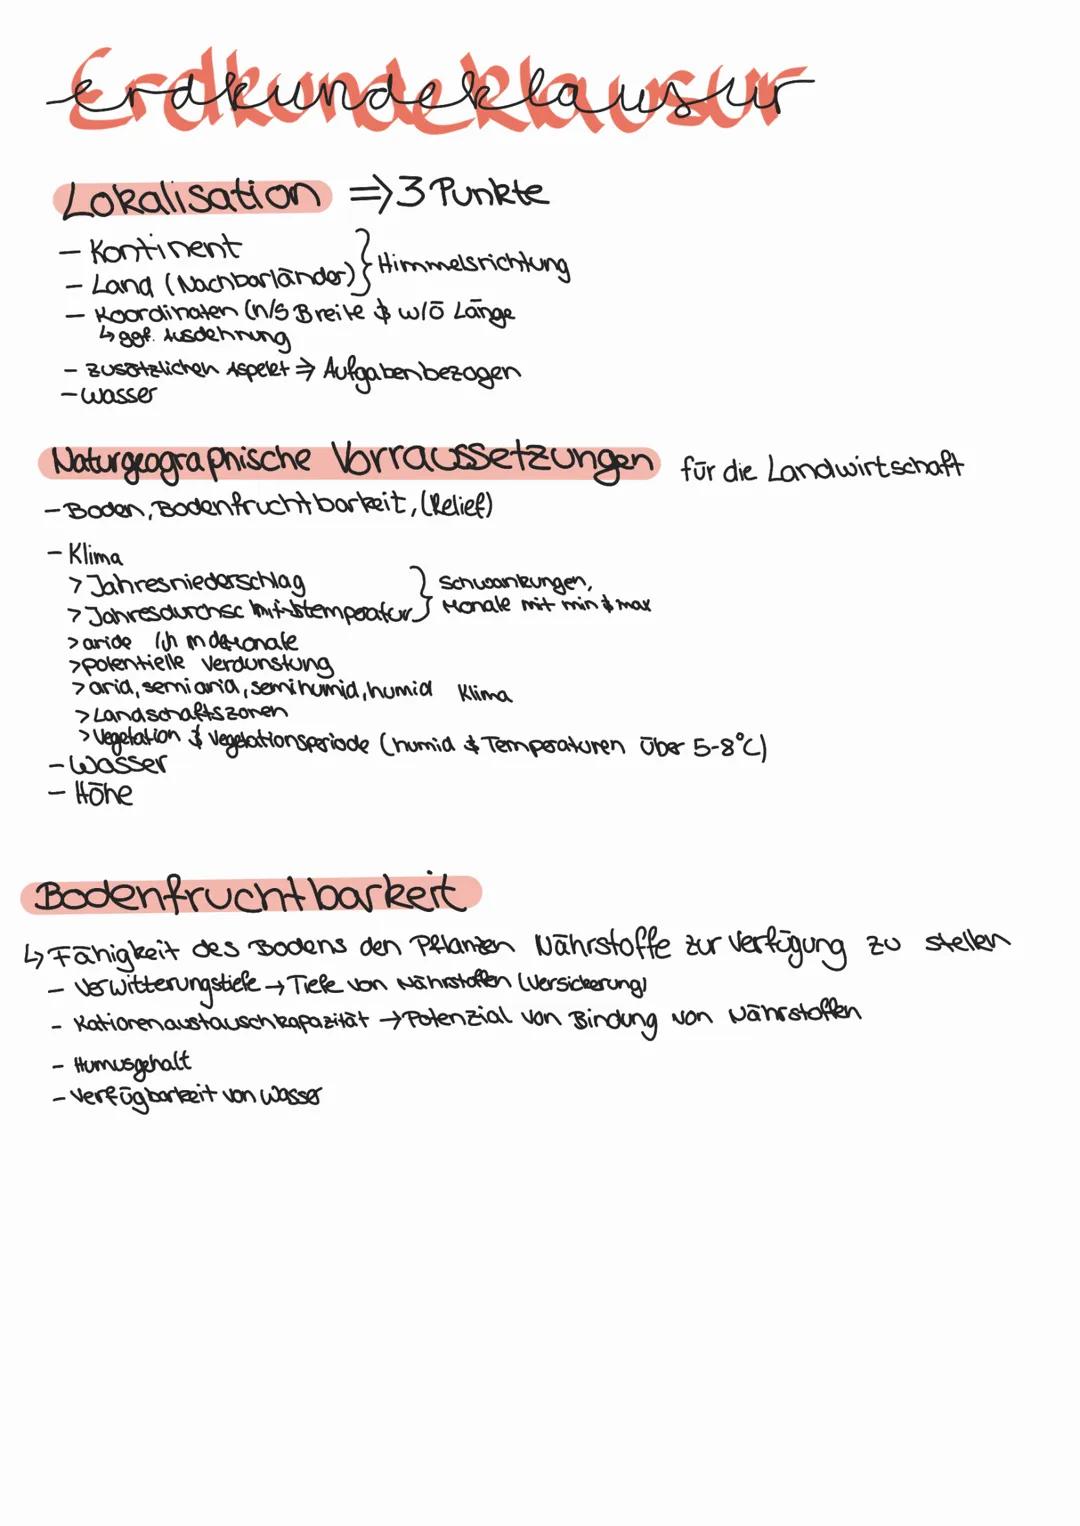 Erdkundeklausur
Lokalisation => 3 Punkte
- Kontinent
- Land (Nachbarländer) } Himmelsrichtung
- Koordinaten (n/s Breite & w/ö Länge
↳ ggf. Ausdehnung
- zusätzlichen Aspekt => Aufgabenbezogen
- Wasser
Naturgeographische Vorraussetzungen für die Landwirtschaft
- Boden, Bodenfruchtbarkeit, (Relief)
- Klima
> Jahresniederschlag } Schwankungen,
> Jahresdurchsc hnittstemperatur } Monate mit min & max
> aride
> potentielle Verdunstung
> arid, semiarid, semihumid, humid Klima
> Landschaftszonen
> Vegetation & Vegetationsperiode (humid & Temperaturen über 5-8°C)
- Wasser
- Höhe
Bodenfruchtbarkeit
↳ Fähigkeit des Bodens den Pflanzen Nährstoffe zur Verfügung zu stellen
- Verwitterungstiefe → Tiefe von Nährstoffen (Versickerung)
- Kationenaustauschkapazität → Potenzial von Bindung von Nährstoffen
- Humusgehalt
- Verfügbarkeit von Wasser